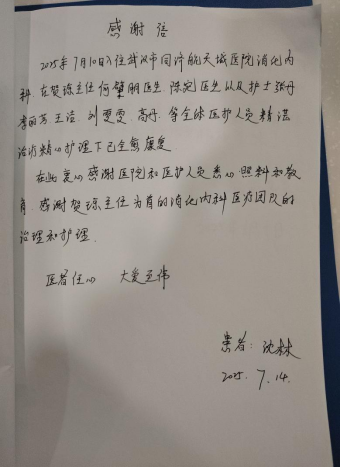 感谢信
2025年7月10日入住武汉市同济航天城医院消化内
科,在贺琼主任 何肇明医生、陈定医生以及护士张丹
李丽芳 王洁、刘雯雯、高丹、等全体医护人员精湛
治疗精心护理下已全愈康复
在此衷心感谢医院和医护人员悉心照料和教
育、感谢贺琼主任为首的消化内科医疗团队的
治理和护理、
医者仁心 大爱至伟
患者:沈林
2025.7.14.